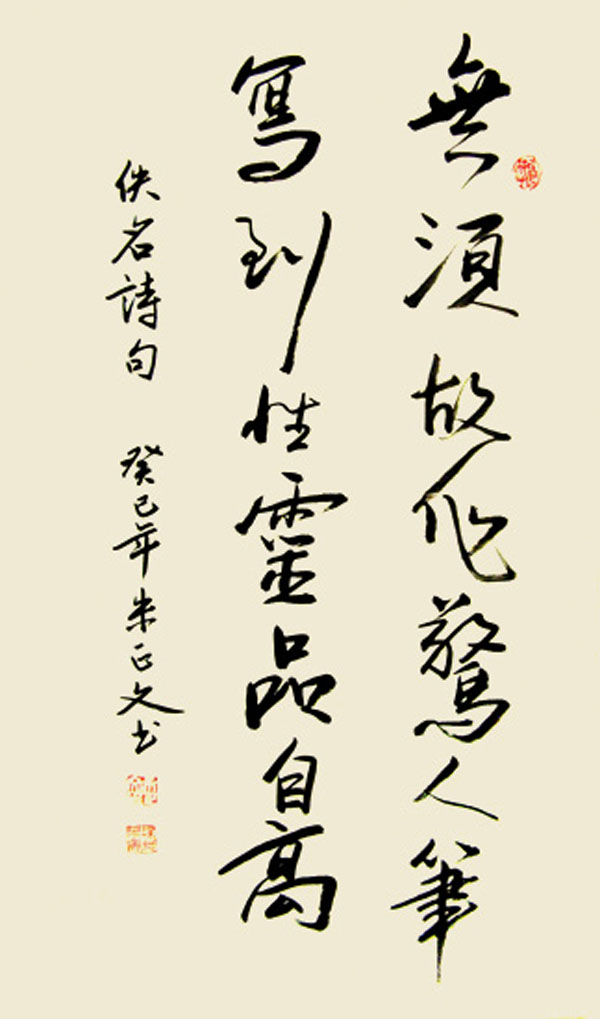 無須故作驚人筆
寫到性靈品自高
佚名詩句 癸巳年朱正文书